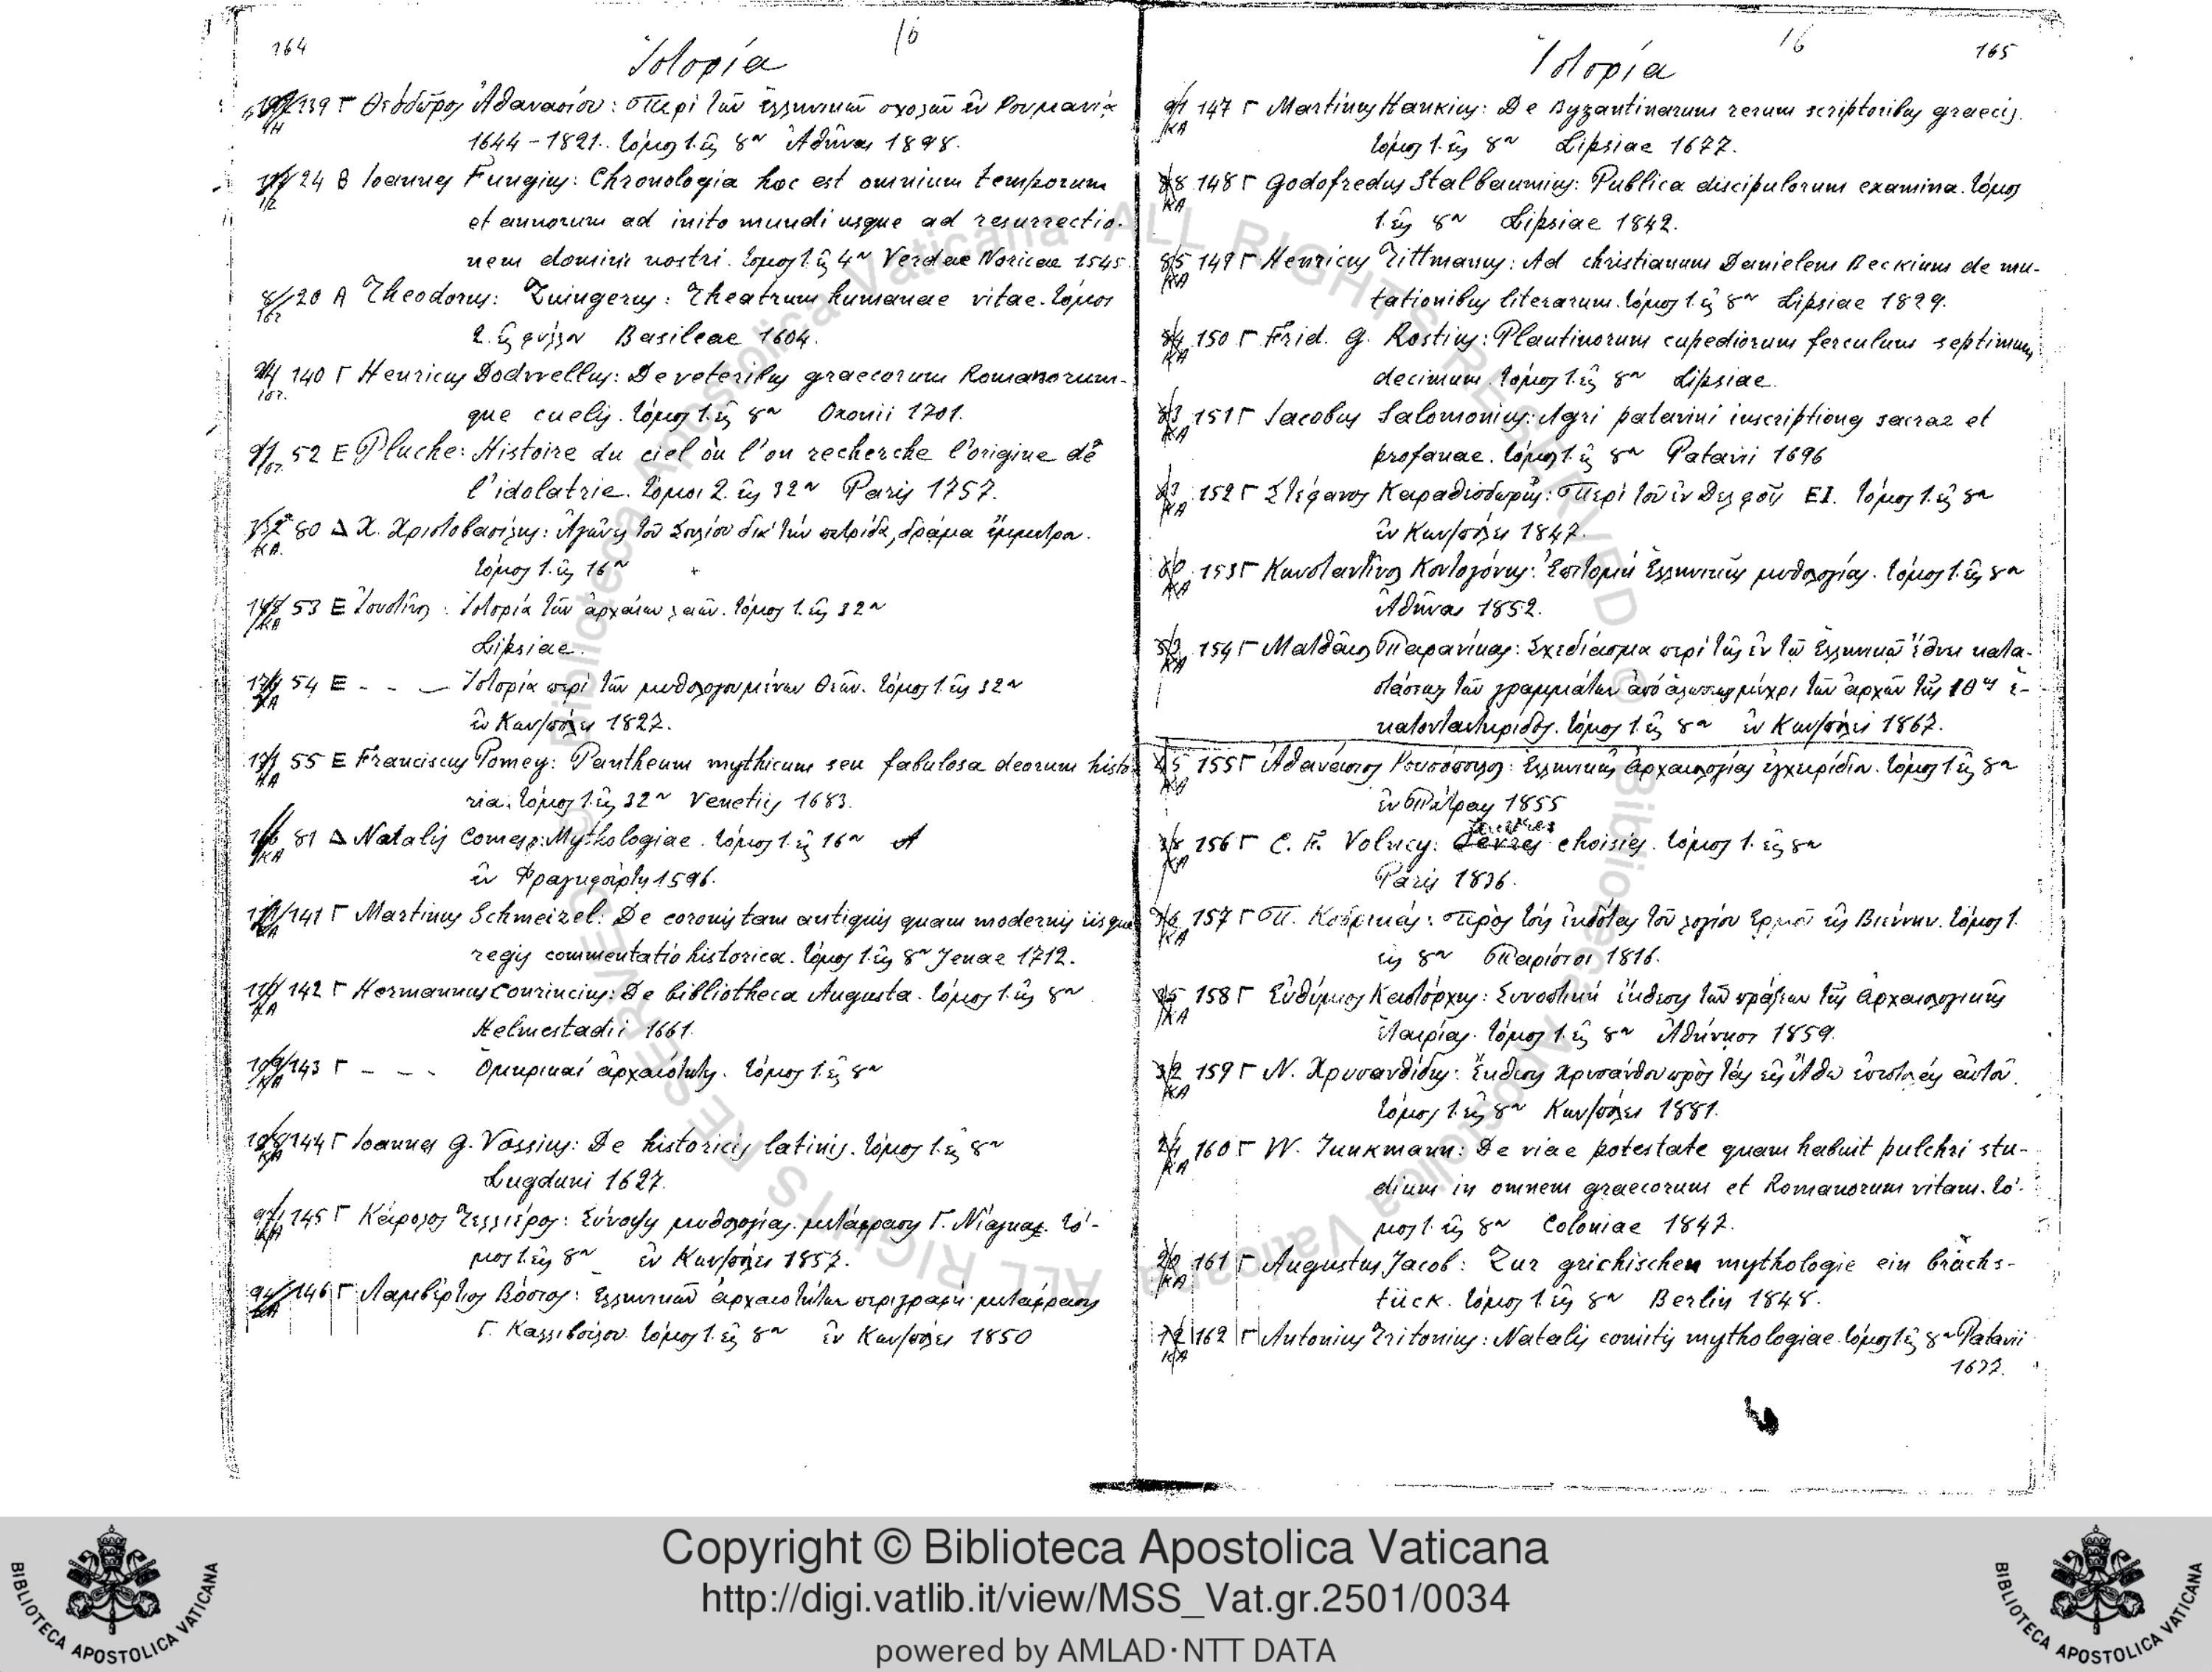 164
16
Ἱστορία
139 Γ Θεόδωρος Ἀθανασίου: Περὶ τῶν ἑλληνικῶν σχολῶν ἐν Ρουμανίᾳ
1644-1821. τόμος 1. εἰς 8ον Ἀθῆναι 1898.
24 Β Ioannes Fungius: Chronologia hoc est omnium temporum
et annorum ad inito mundi usque ad resurrectio-
nem domini nostri. τόμος 1. εἰς 4ον Verdae Noricae 1545
20 Α Theodorus: Zuingerus: Theatrum humanae vitae. τόμοι
2. εἰς φύλλον Basileae 1604.
140 Γ Henricus Dodwellus: De veteribus graecorum Romanorum-
que cuclis. τόμος 1. εἰς 8ον Oxonii 1701.
52 Ε Pluche: Histoire du ciel où l'on recherche l'origine de
l'idolatrie. τόμοι 2. εἰς 32ον Paris 1757.
80 Δ Χ. Χριστοβασίλης: Ἀγῶνες τοῦ Σουλίου διὰ τὴν πατρίδα, δρᾶμα ἔμμετρον.
τόμος 1. εἰς 16ον
53 Ε Ἰουστῖνος: Ἱστορία τῶν ἀρχαίων λαῶν. τόμος 1. εἰς 32ον
Lipsiae.
54 Ε - - - Ἱστορία περὶ τῶν μυθολογουμένων θεῶν. τόμος 1. εἰς 32ον
ἐν Κων/πόλει 1827.
55 Ε Franciscus Pomey: Pantheum mythicum seu fabulosa deorum histo
ria. τόμος 1. εἰς 32ον Venetiis 1683.
81 Δ Natalis Comes: Mythologiae. τόμος 1. εἰς 16ον
ἐν Φραγκφόρτῃ 1596.
141 Γ Martinus Schmeizel: De coronis tam antiquis quam modernis iisque
regis commentatio historica. τόμος 1. εἰς 8ον Jenae 1712.
142 Γ Hermannus Conrincius: De bibliotheca Augusta. τόμος 1. εἰς 8ον
Helmestadii 1661.
143 Γ - - - Ὁμηρικαὶ ἀρχαιότητες. τόμος 1. εἰς 8ον
144 Γ Ioannes G. Vossius: De historicis latinis. τόμος 1. εἰς 8ον
Lugduni 1627.
145 Γ Κάρολος Τελλιέρος: Σύνοψις μυθολογίας μετάφρασις Γ. Νίαγκας. τό-
μος 1. εἰς 8ον ἐν Κων/πόλει 1857.
146 Γ Λαμβέρτιος Βόσιος: Ἑλληνικῶν ἀρχαιοτήτων περιγραφὴ μετάφρασις
Γ. Καλλιβούλου τόμος 1. εἰς 8ον ἐν Κων/πόλει 1850
16
165
Ἱστορία
147 Γ Martinus Hankius: De Byzantinarum rerum scriptoribus graecis.
τόμος 1. εἰς 8ον Lipsiae 1677.
148 Γ Godofredus Stalbaumius: Publica discipulorum examina. τόμος
1. εἰς 8ον Lipsiae 1842.
149 Γ Henricus Tittmanus: Ad christianum Danielem Beckium de mu-
tationibus literarum. τόμος 1. εἰς 8ον Lipsiae 1829.
150 Γ Frid. G. Rostius: Plautinorum cupediorum ferculum septimum
decimum. τόμος 1. εἰς 8ον Lipsiae.
151 Γ Jacobus Salomonius: Agri patavini inscriptiones sacrae et
profanae. τόμος 1. εἰς 8ον Patavii 1696
152 Γ Στέφανος Καραθεοδωρῆς: Περὶ τοῦ ἐν Δελφοῖς ΕΙ. τόμος 1. εἰς 8ον
ἐν Κων/πόλει 1847.
153 Γ Κωνσταντῖνος Κοντογόνης: Ἐπιτομὴ Ἑλληνικῆς μυθολογίας. τόμος 1. εἰς 8ον
Ἀθῆναι 1852.
154 Γ Ματθαῖος Παρανίκας: Σχεδίασμα περὶ τῆς ἐν τῷ Ἑλληνικῷ ἔθνει κατα-
στάσεως τῶν γραμμάτων ἀπὸ ἁλώσεως μέχρι τῶν ἀρχῶν τῆς 19ης ἑ-
κατονταετηρίδος. τόμος 1. εἰς 8ον ἐν Κων/πόλει 1867.
155 Γ Ἀθανάσιος Ρουσόπουλος: Ἑλληνικῆς ἀρχαιολογίας ἐγχειρίδιον. τόμος 1. εἰς 8ον
ἐν Πάτραις 1855
156 Γ C. F. Volney: choisies. τόμος 1. εἰς 8ον
Paris 1836.
157 Γ Π. Κοδρικᾶς: Πρὸς τοὺς ἐκδότας τοῦ λογίου Ἑρμοῦ εἰς Βιέννην. τόμος 1.
εἰς 8ον Παρίσιοι 1816.
158 Γ Εὐθύμιος Καστόρχης: Συνοπτικὴ ἔκθεσις τῶν πράξεων τῆς ἀρχαιολογικῆς
ἑταιρίας. τόμος 1. εἰς 8ον Ἀθήνησι 1859.
159 Γ Ν. Χρυσανθίδης: Ἔκθεσις Χρυσάνθου πρὸς τὰς εἰς Ἄθω ἐπιστολὰς αὐτοῦ.
τόμος 1. εἰς 8ον Κων/πόλει 1881.
160 Γ W. Junkmann: De viae potestate quam habuit pulchri stu-
dium in omnem graecorum et Romanorum vitam. τό-
μος 1. εἰς 8ον Coloniae 1847.
161 Γ Augustus Jacob: Zur grichischen mythologie ein brŭchs-
tück. τόμος 1. εἰς 8ον Berlin 1848.
162 Γ Antonius Tritonius: Natalis comitis mythologiae. τόμος 1. εἰς 8ον Patavii
1637.
Copyright © Biblioteca Apostolica Vaticana
http://digi.vatlib.it/view/MSS_Vat.gr.2501/0034
powered by AMLAD·NTT DATA
BIBLIOTECA APOSTOLICA VATICANA
BIBLIOTECA APOSTOLICA VATICANA